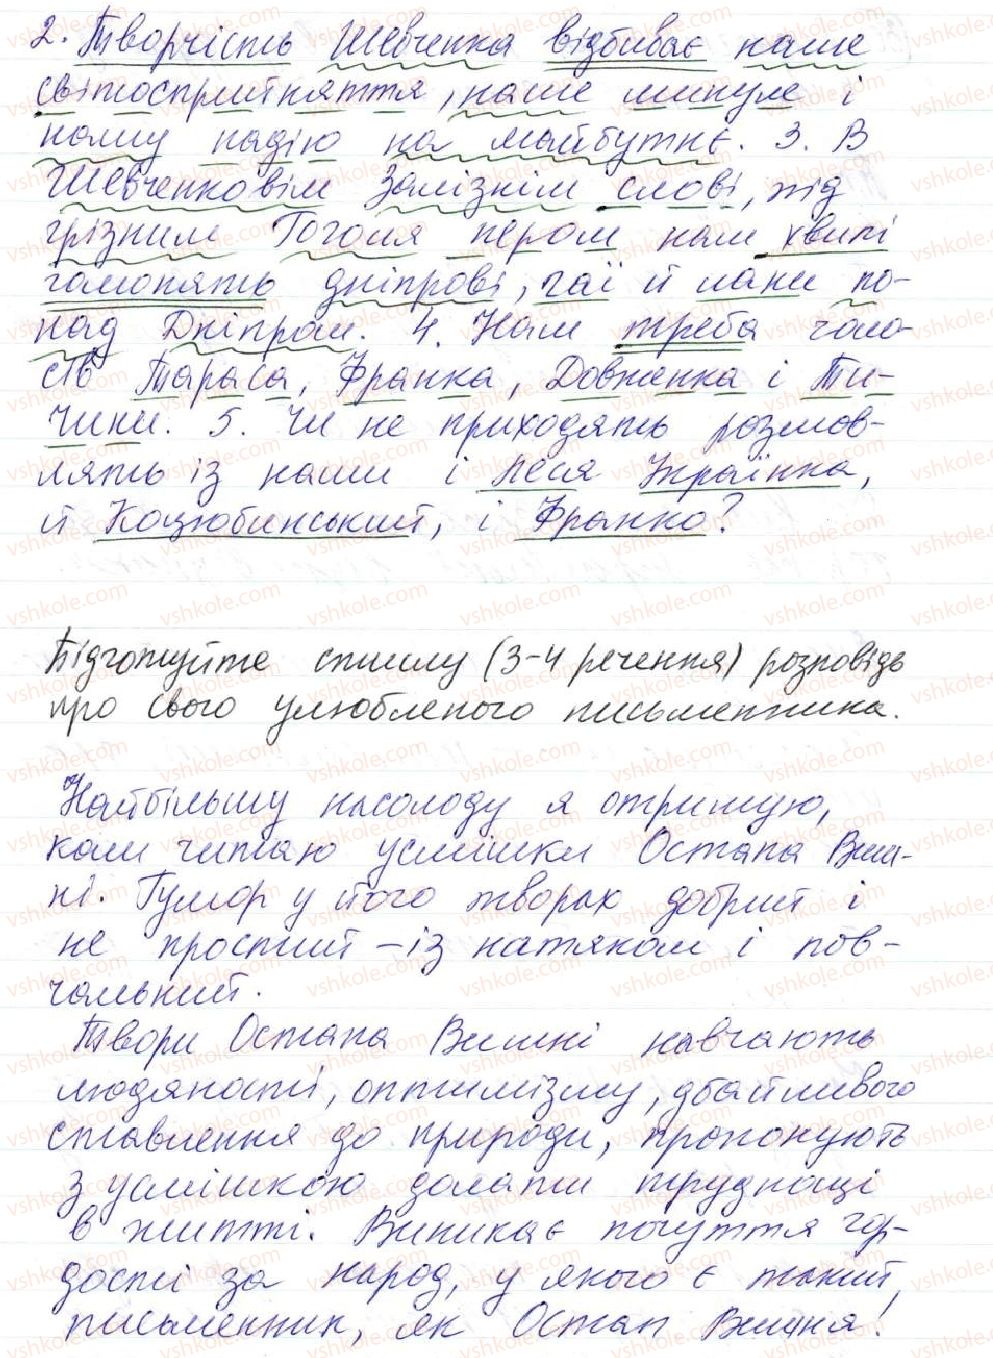 2. Творчість Шевченка відбиває наше
світосприйняття, наше минуле і
нашу надію на майбутнє. 3. В
Шевченковім залізнім слові, під
грізним Гоголя пером нам хвилі
гомонять дніпрові, гаї й лани по-
над Дніпром. 4. Нам треба голо-
сів Тараса, Франка, Довженка і Ти-
чини. 5. Чи не приходять розмов-
лять із нами і Леся Українка,
й Коцюбинський, і Франко?
Підготуйте стислу (3-4 речення) розповідь
про свого улюбленого письменника.
Найбільшу насолоду я отримую,
коли читаю усмішки Остапа Виш-
ні. Гумор у його творах добрий і
не простий - із натяком і пов-
чальний.
Твори Остапа Вишні навчають
людяності, оптимізму, дбайливого
ставлення до природи, пропонують
з усмішкою долати труднощі
в житті. Виникає почуття гор-
дості за народ, у якого є такий
письменник, як Остап Вишня!